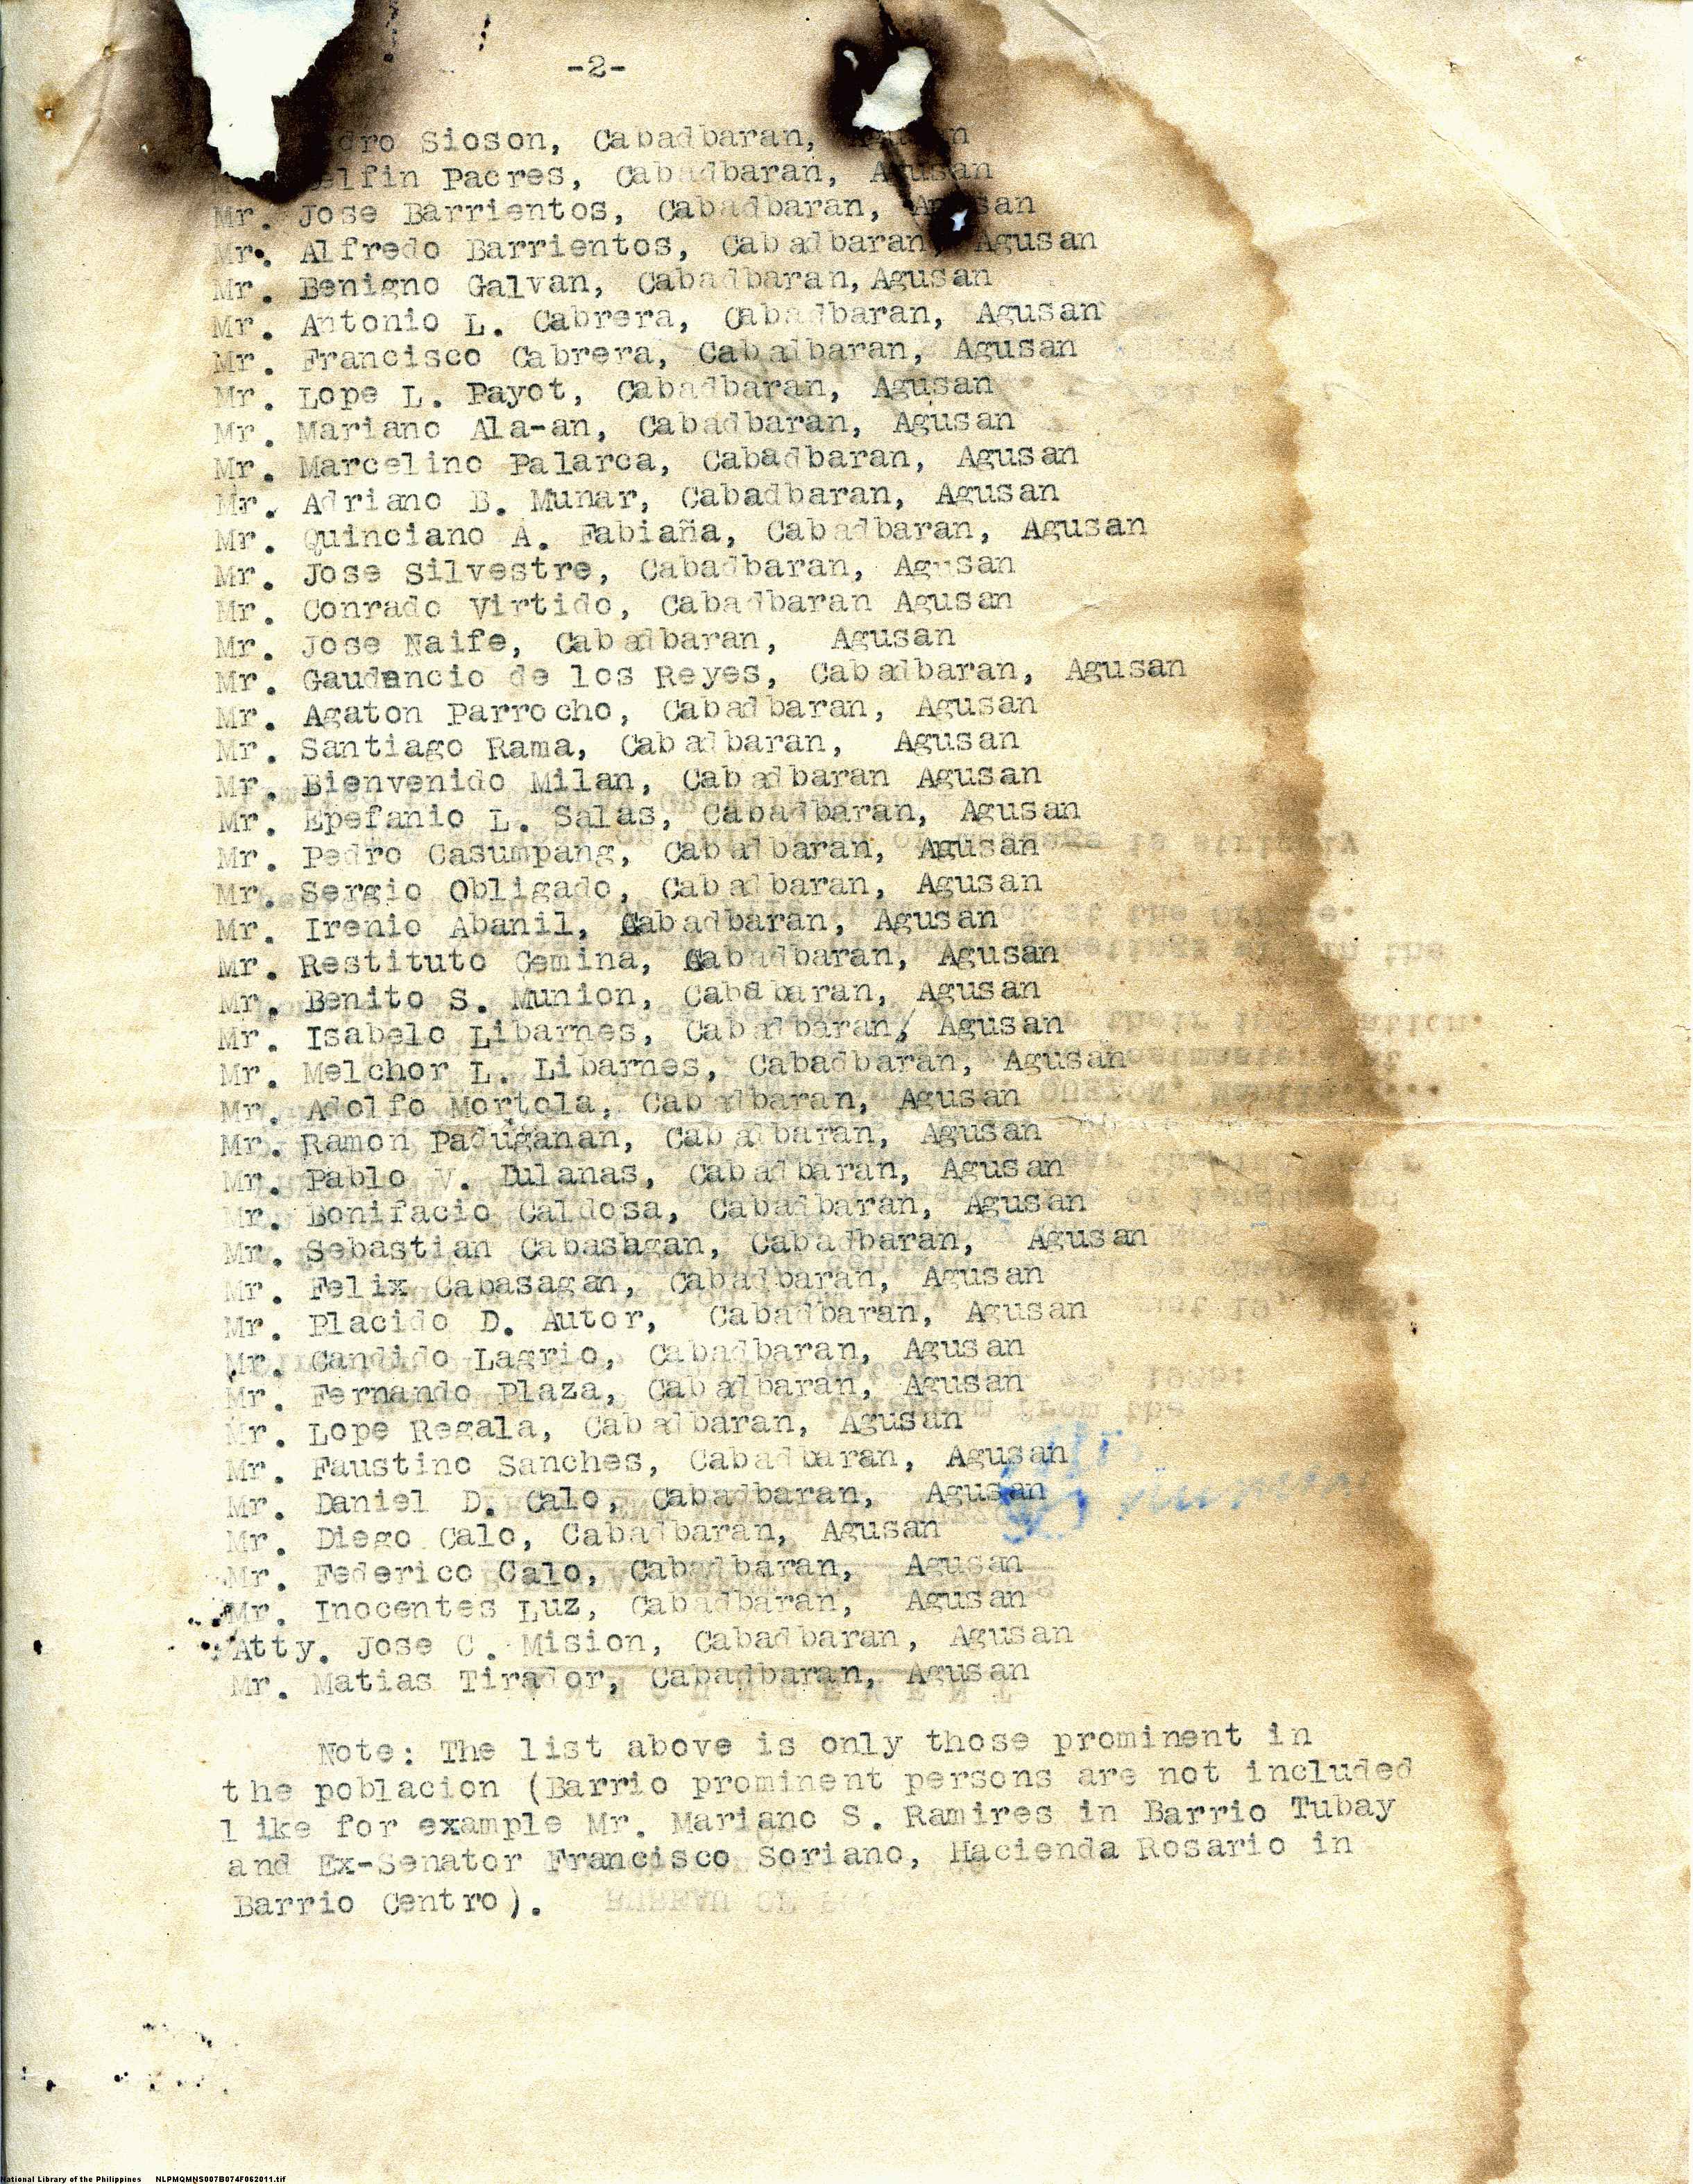 -2-
Sioson, Cabadbaran,
Pacres, Cabadbaran, Agusan
Mr. Jose Barrientos, Cabadbaran, Agusan
Mr. Alfredo Barrientos, Cabadbaran, Agusan
Mr. Benigno Galvan, Cabadbaran, Agusan
Mr. Antonio L. Cabrera, Cabadbaran, Agusan
Mr. Francisco Cabrera, Cabadbaran, Agusan
Mr. Lope L. Payot, Cabadbaran, Agusan
Mr. Mariano Ala-an, Cabadbaran, Agusan
Mr. Marcelino Palarca, Cabadbaran, Agusan
Mr. Adriano B. Munar, Cabadbaran, Agusan
Mr. Quinciano A. Fabiaña, Cabadbaran, Agusan
Mr. Jose Silvestre, Cabadbaran, Agusan
Mr. Conrado Virtido, Cabadbaran Agusan
Mr. Jose Naife, Cabadbaran, Agusan
Mr. Gaudencio de los Reyes, Cabadbaran, Agusan
Mr. Agaton Parrocho, Cabadbaran, Agusan
Mr. Santiago Rama, Cabadbaran, Agusan
Mr. Bienvenido Milan, Cabadbaran Agusan
Mr. Epefanio L. Salas, Cabadbaran, Agusan
Mr. Pedro Casumpang, Cabadbaran, Agusan
Mr. Sergio Obligado, Cabadbaran, Agusan
Mr. Irenio Abanil, Cabadbaran, Agusan
Mr. Restituto Cemina, Cabadbaran, Agusan
Mr. Benito S. Munion, Cabadbaran, Agusan
Mr. Isabelo Libarnes, Cabadbaran, Agusan
Mr. Melchor L. Libarnes, Cabadbaran, Agusan
Mr. Adolfo Mortola, Cabadbaran, Agusan
Mr. Ramon Paduganan, Cabadbaran, Agusan
Mr. Pablo V. Dulanas, Cabadbaran, Agusan
Mr. Bonifacio Caldosa, Cabadbaran, Agusan
Mr. Sebastian Cabasagan, Cabadbaran, Agusan
Mr. Felix Cabasagan, Cabadbaran, Agusan
Mr. Placido D. Autor, Cabadbaran, Agusan
Mr. Candido Lagrio, Cabadbaran, Agusan
Mr. Fernando Plaza, Cabadbaran, Agusan
Mr. Lope Regala, Cabadbaran, Agusan
Mr. Faustino Sanches, Cabadbaran, Agusan
Mr. Daniel D. Calo, Cabadbaran, Agusan
Mr. Diego Calo, Cabadbaran, Agusan
Mr. Federico Calo, Cabadbaran, Agusan
Mr. Inocentes Luz, Cabadbaran, Agusan
Atty. Jose C. Mision, Cabadbaran, Agusan
Mr. Matias Tirador, Cabadbaran, Agusan
Note: The list above is only those prominent in
the poblacion (Barrio prominent persons are not included
like for example Mr. Mariano S. Ramires in Barrio Tubay
and Ex-Senator Francisco Soriano, Hacienda Rosario in
Barrio Centro).
National Library of the Philippines NLPMQMNS007B074F062011.tif